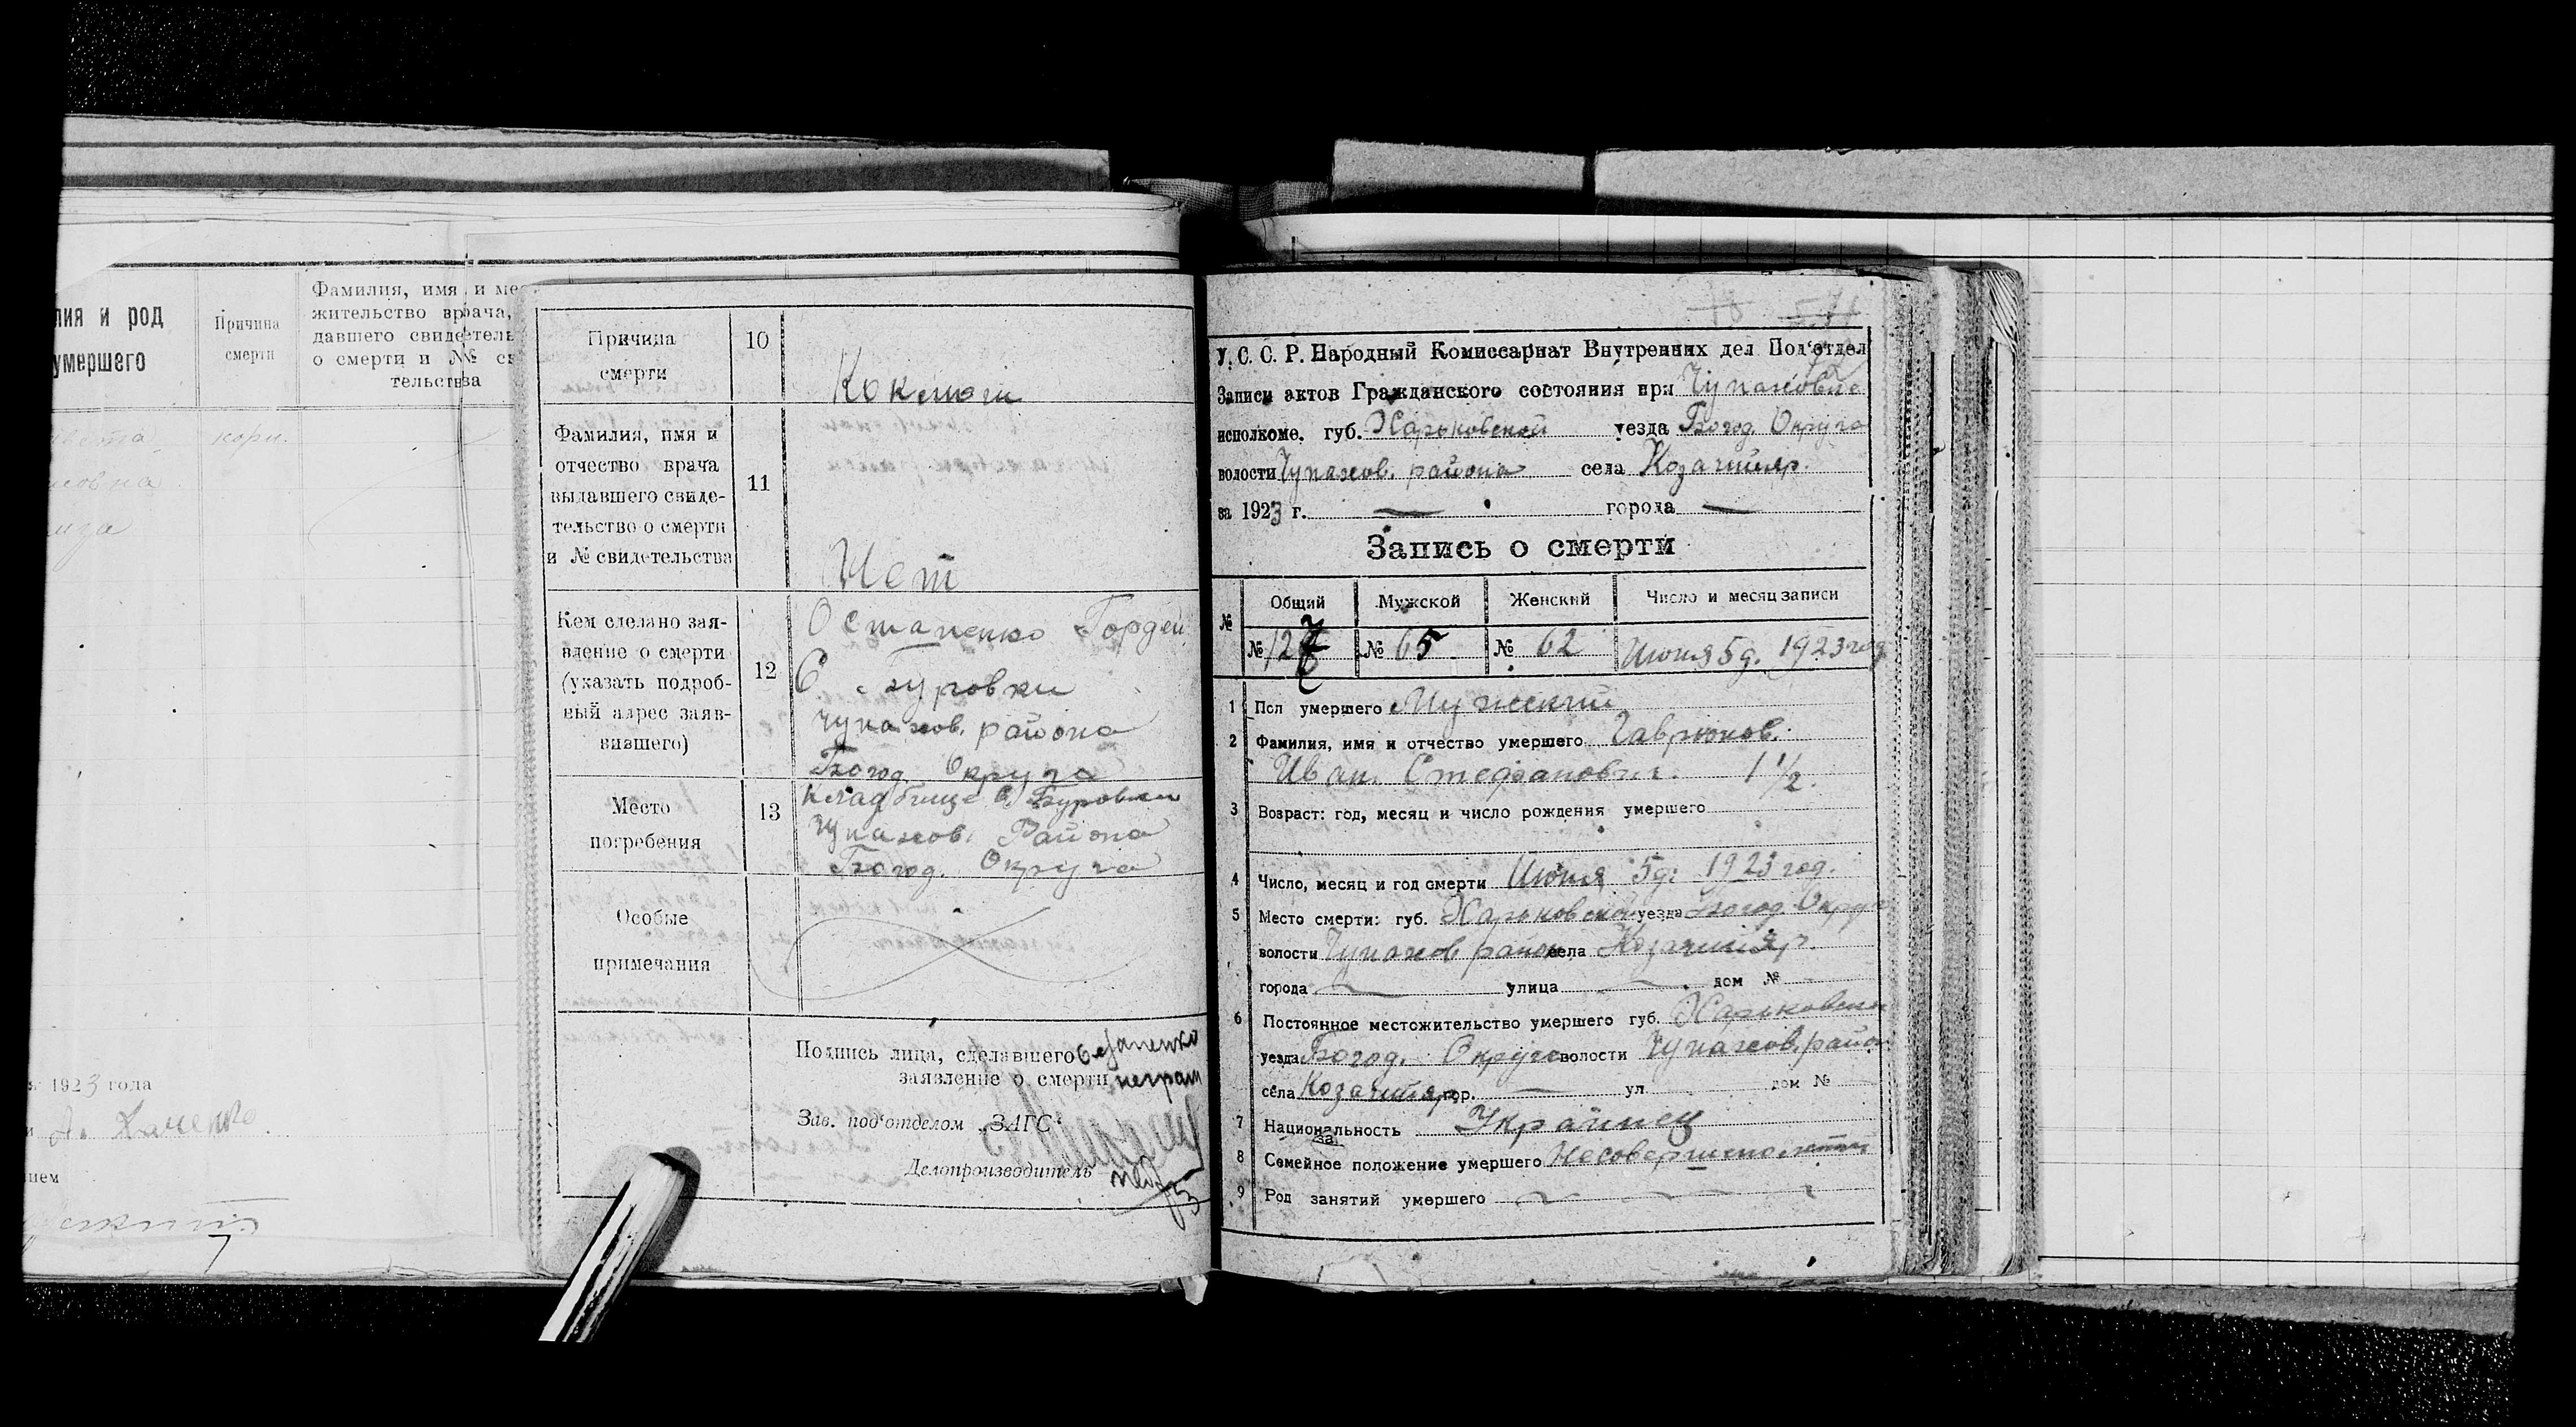 лия и род
умершего
Причина
смерти
Фамилия, имя и мес
жительство врача,
давшего свидетель
о смерти и № св
тельства
кори.
1923 года
7
Причина
смерти
10
Коклюш
Фамилия, имя и
отчество врача
выдавшего свиде-
тельство о смерти
и № свидетельства
11
Нет
Кем сделано зая-
вление о смерти
(указать подроб-
ный адрес заяв-
вившего)
12
Остапенко Гордей
С. Буровки
Чупахов. района
Богод. Округа
Место
погребения
13
Кладбище С. Буровки
Чупахов. Района
Богод. Округа
Особые
примечания
Подпись лица, сделавшего Остапенко
заявление о смерти неграм
Зав. под'отделом „ЗАГС"
Делопроизводитель
У. С. С. Р. Народный Комиссариат Внутренних дел Под'отдел
Записи актов Гражданского состояния при Чупаховке
исполкоме. губ. Харьковской уезда Богод. Округа
волости Чупахов. района села Козачийяр.
за 1923 г. — города —
Запись о смерти
№ Общий Мужской Женский Число и месяц записи
№ 127 № 65 № 62 Июня 5 д. 1923 год
1 Пол умершего Мужский
2 Фамилия, имя и отчество умершего Гаврюков.
Иван Стефанович. 1 1/2.
3 Возраст: год, месяц и число рождения умершего
4 Число, месяц и год смерти Июня 5 д. 1923 год.
5 Место смерти: губ. Харьковской уезда Богод. Округа
волости Чупахов района села Козачийяр.
города — улица — дом №
6 Постоянное местожительство умершего губ. Харьковской
уезда Богод. Округа волости Чупахов. район
села Козачийяр. гор. — ул. дом №
7 Национальность Украинец
8 Семейное положение умершего Несовершенолетий
9 Род занятий умершего —